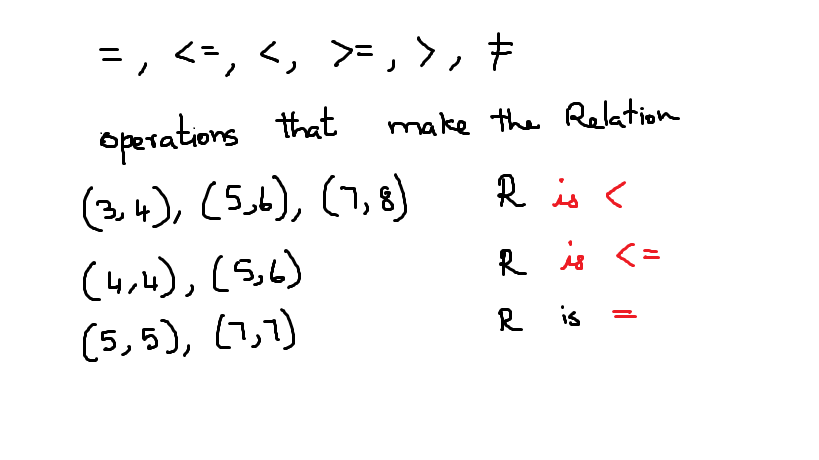 =, <=, <, >=, >, ≠
operations that make the Relation
(3,4), (5,6), (7,8) R is <
(4,4), (5,6) R is <=
(5,5), (7,7) R is =